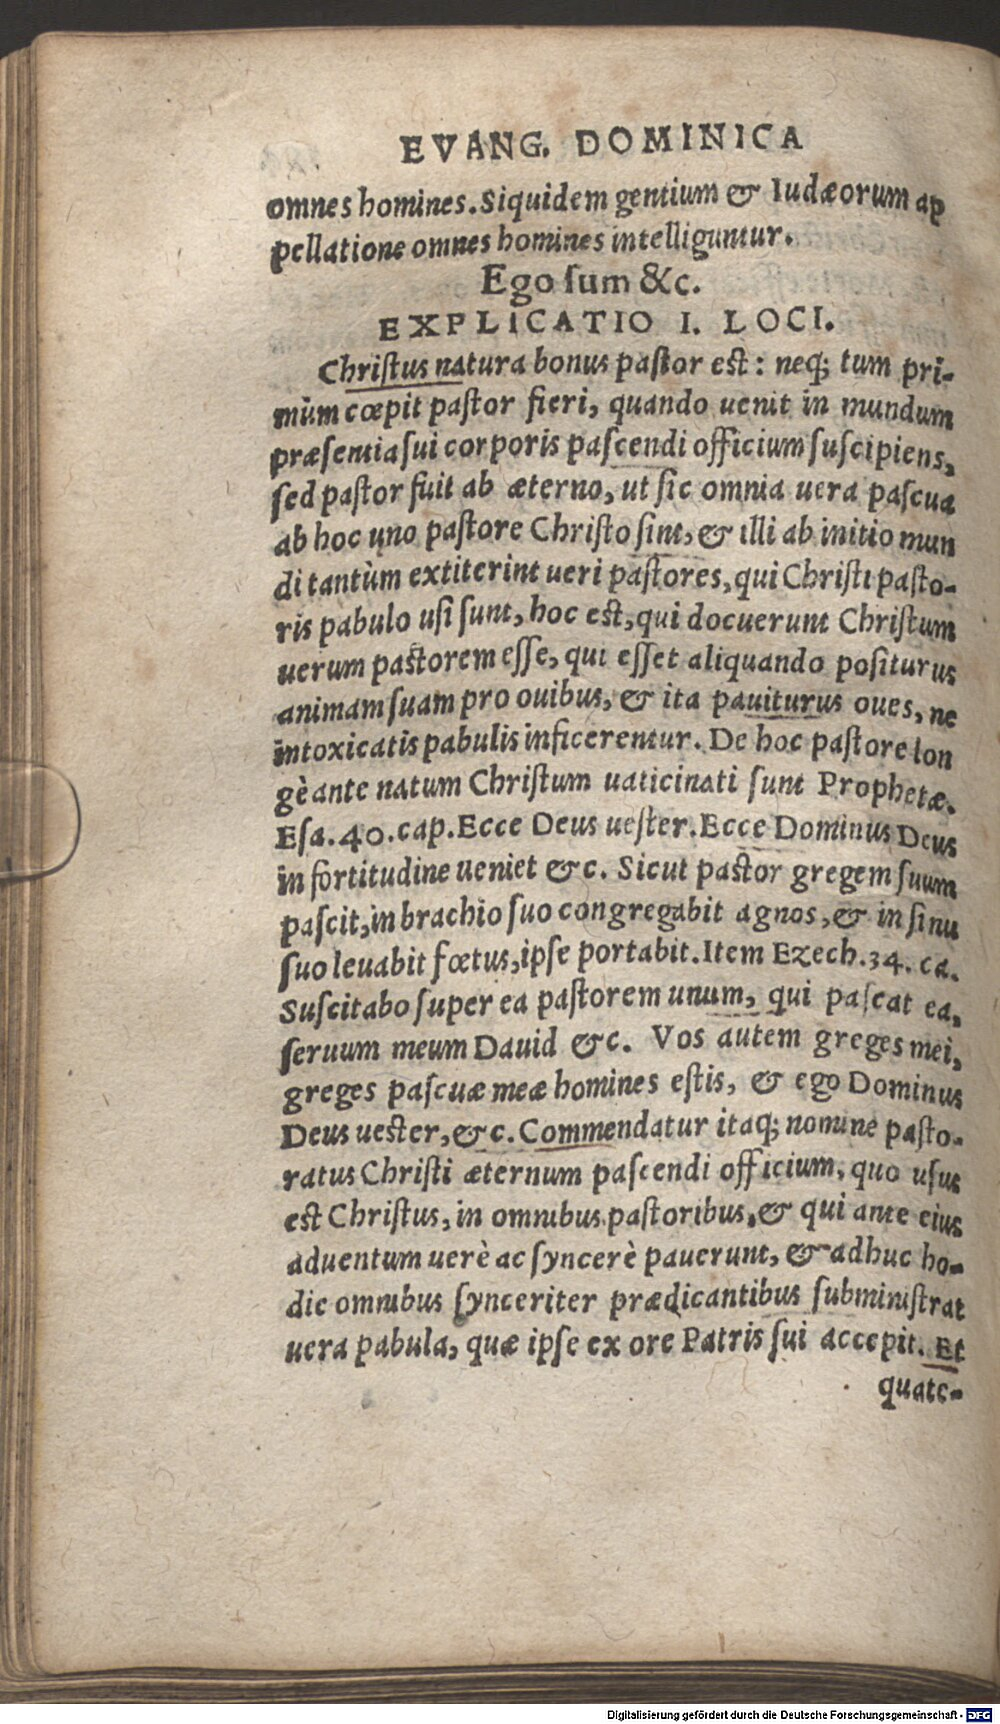 EVANG. DOMINICA
omnes homines. Siquidem gentium & Iudæorum ap
pellatione omnes homines intelliguntur.
Ego sum &c.
EXPLICATIO I. LOCI.
Christus natura bonus pastor est: neq; tum pri-
mùm cœpit pastor fieri, quando uenit in mundum
præsentia sui corporis pascendi officium suscipiens,
sed pastor fuit ab æterno, ut sic omnia uera pascua
ab hoc uno pastore Christo sint, & illi ab initio mun
di tantùm extiterint ueri pastores, qui Christi pasto-
ris pabulo usi sunt, hoc est, qui docuerunt Christum
uerum pastorem esse, qui esset aliquando positurus
animam suam pro ouibus, & ita pauiturus oues, ne
intoxicatis pabulis inficerentur. De hoc pastore lon
gè ante natum Christum uaticinati sunt Prophetæ.
Esa. 40. cap. Ecce Deus uester. Ecce Dominus Deus
in fortitudine ueniet &c. Sicut pastor gregem suum
pascit, in brachio suo congregabit agnos, & in sinu
suo leuabit fœtus, ipse portabit. Item Ezech. 34. ca.
Suscitabo super ea pastorem unum, qui pascat ea,
seruum meum Dauid &c. Vos autem greges mei,
greges pascuæ meæ homines estis, & ego Dominus
Deus uester, &c. Commendatur itaq; nomine pasto-
ratus Christi æternum pascendi officium, quo usus
est Christus, in omnibus pastoribus, & qui ante eius
aduentum uerè ac syncerè pauerunt, & adhuc ho-
die omnibus synceriter prædicantibus subministrat
uera pabula, quæ ipse ex ore Patris sui accepit. Et
quate-
Digitalisierung gefördert durch die Deutsche Forschungsgemeinschaft - DFG